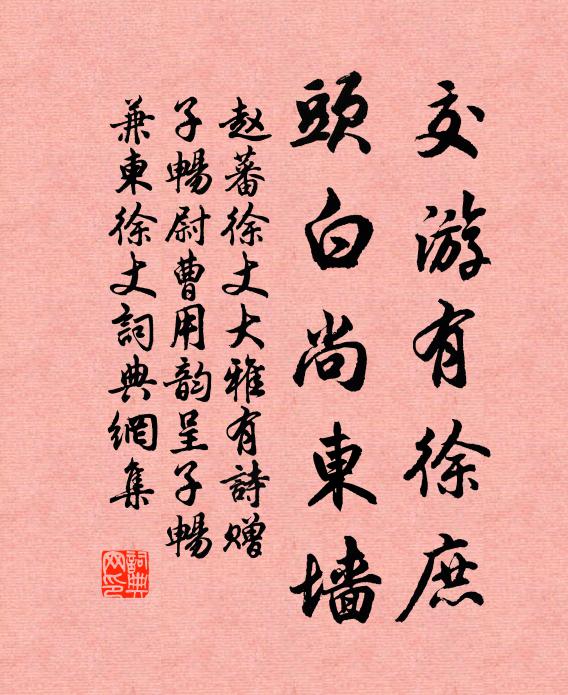 交游有徐庶
頭白尚東墙
赵蕃徐丈大雅有詩赠
子暢尉曹用韵呈子暢
兼東徐丈詞典網集
詞典网印